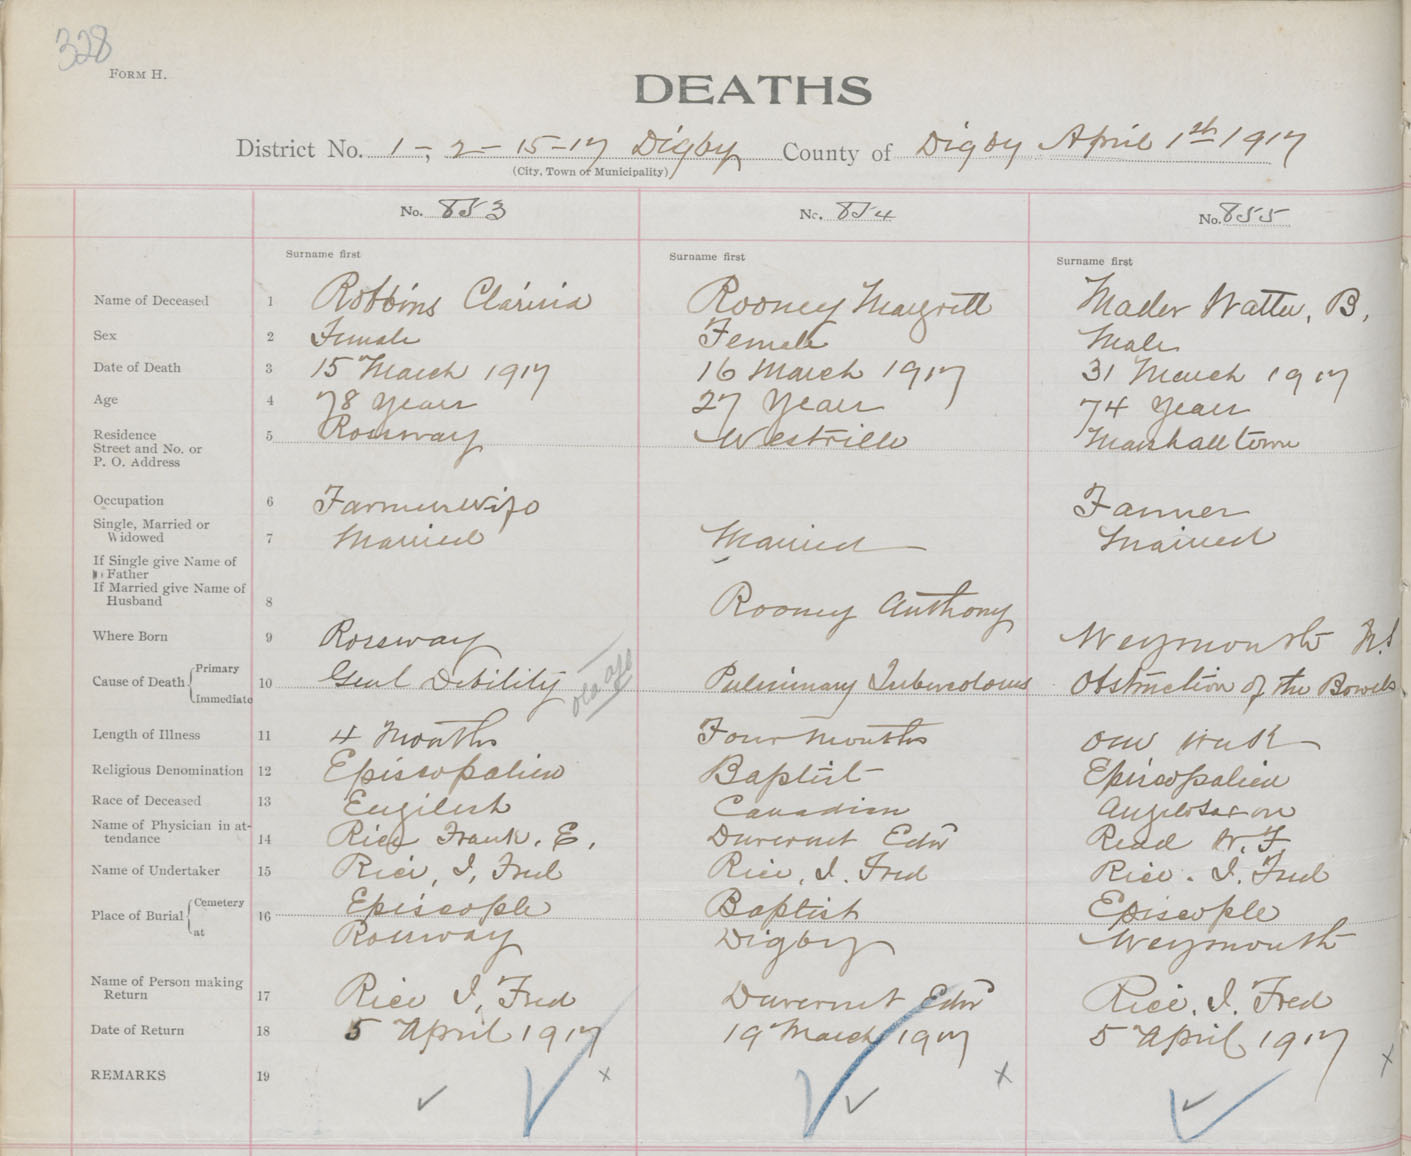 328
FORM H.
DEATHS
District No. 1-, 2- 15-17 Digby County of Digby April 1th 1917
(City, Town or Municipality)
No. 853 No. 854 No. 855
Surname first Surname first Surname first
Name of Deceased 1 Robbins Clarisia Rooney Margrett Mader Watter, B,
Sex 2 Female Female Male
Date of Death 3 15 March 1917 16 March 1917 31 March 1917
Age 4 78 Years 27 Years 74 Years
Residence
Street and No. or
P. O. Address
5 Rossway Westville Marshalltown
Occupation 6 Farmerswife Farmer
Single, Married or
Widowed 7 Married Married Married
If Single give Name of
Father
If Married give Name of
Husband 8 Rooney Anthony
Where Born 9 Rossway Weymouth N.S
Cause of Death Primary
Immediate
10 Genl Debility old age Pulmimary Tubercolous Obstruction of the Bowels
Length of Illness 11 4 Months Four Months one week
Religious Denomination 12 Episcopalien Baptist Episcopalien
Race of Deceased 13 Englisch Canadian Anglosaxon
Name of Physician in at-
tendance 14 Rice Frank. E, Duvernet Edw Read W. F.
Name of Undertaker 15 Rice, I, Fred Rice, I. Fred Rice. I. Fred
Place of Burial Cemetery
at
16 Episcople Baptist Episcople
Rossway Digby Weymouth
Name of Person making
Return 17 Rice I, Fred Duvernet Edw Rice. I. Fred
Date of Return 18 5 April 1917 19 March 1917 5 April 1917
REMARKS 19 x x x